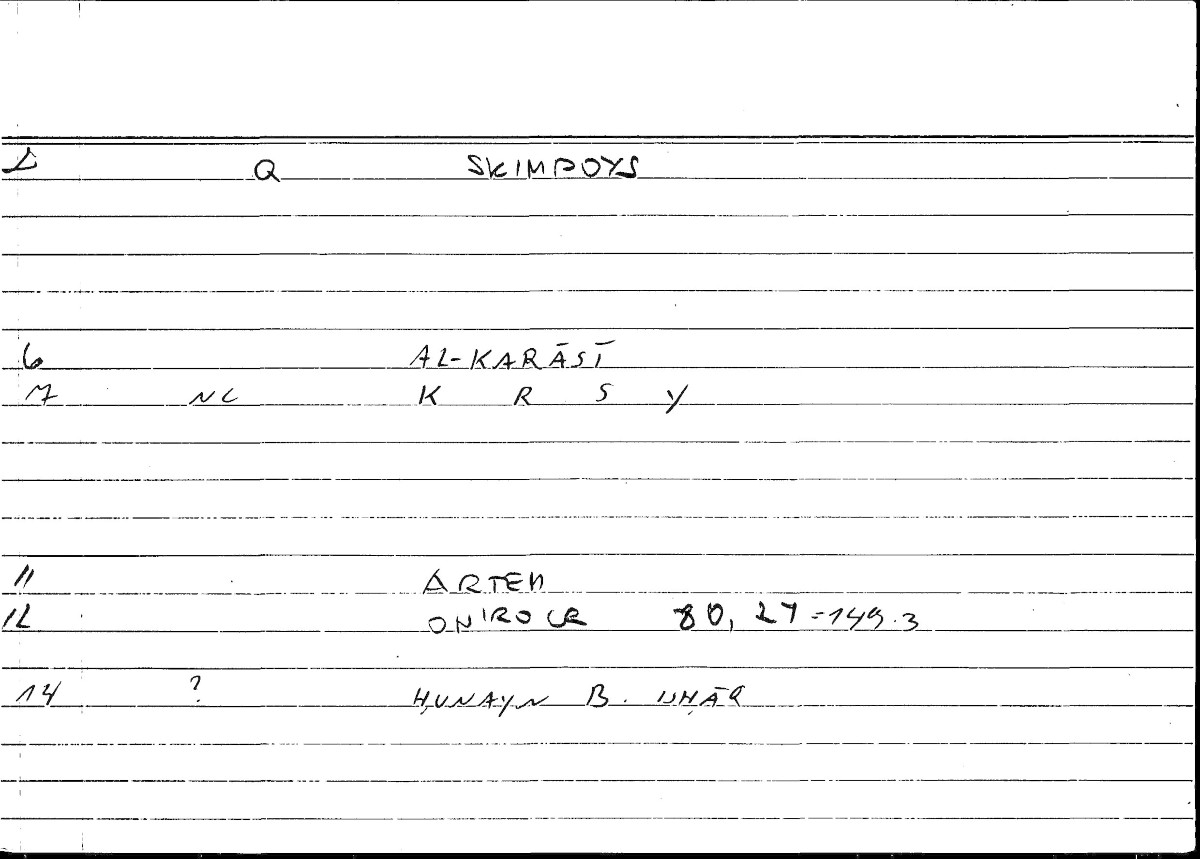 1 Q SKIMPOYS
6 AL-KARĀSĪ
7 NC K R S Y
11 ARTEM
12 ONIROCR 80, 27 = 149.3
14 ? ḤUNAYN B. ISḤĀQ